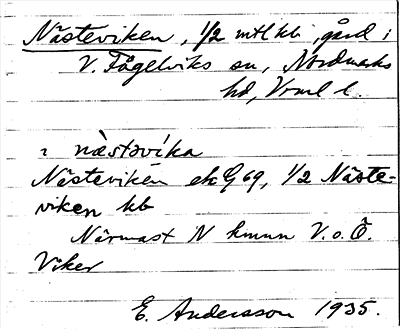 Nästeviken, 1/2 mtl kb, gård i
V. Fågelviks sn, Nordmarks
hd, Vrml l.
: nästəvika
Nästeviken ek G 69, 1/2 Näste-
viken kb
Närmast N hmnn V. o. Ö.
Viker
E. Andersson 1935.